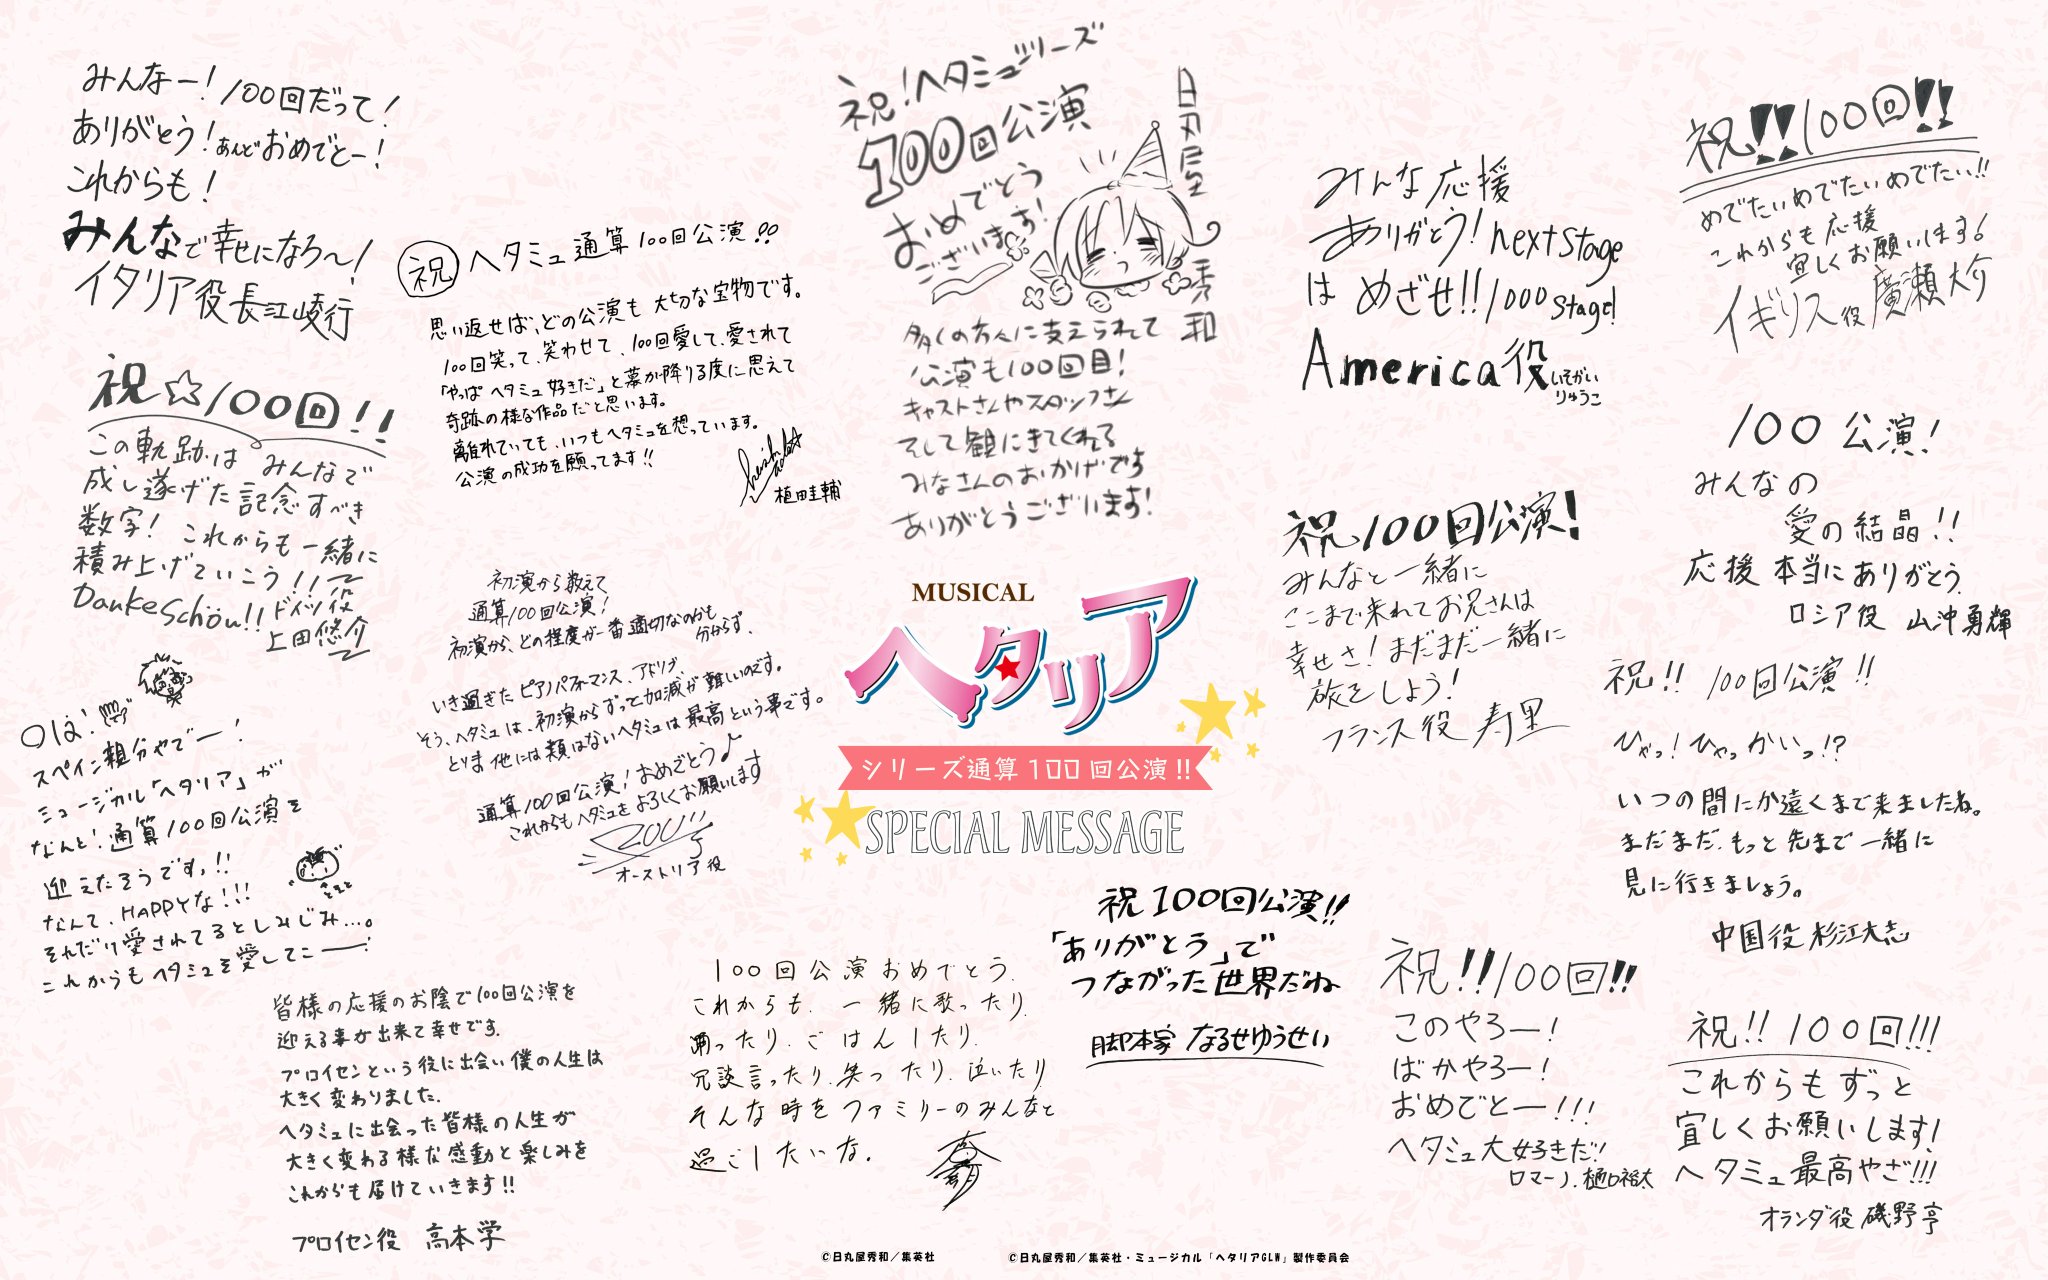 みんなー!100回だって!
ありがとう!あんどおめでとー!
これからも!
みんなで幸せになろ〜!
イタリア役 長江崚行
祝☆100回!!
この軌跡は みんなで
成し遂げた記念すべき
数字! これからも一緒に
積み上げていこう!!
Danke Schön!! ドイツ役
上田悠介
祝 ヘタミュ通算100回公演!!
思い返せば、どの公演も大切な宝物です。
100回笑って、笑わせて、100回愛して、愛されて
「やっぱ ヘタミュ好きだ」と幕が降りる度に思えて
奇跡の様な作品だと思います。
離れていても、いつもヘタミュを想っています。
公演の成功を願ってます!!
植田圭輔
祝!ヘタミュシリーズ
100回公演
おめでとう
ございます!
日丸屋秀和
多くの方々に支えられて
公演も100回目!
キャストさんやスタッフさん
そして観にきてくれる
みなさんのおかげです
ありがとうございます!
みんな応援
ありがとう!next stage
は めざせ!!1000stage!
America役 いそがい
りゅうこ
祝!!100回!!
めでたいめでたいめでたい!!
これからも応援
宜しくお願いします!
イギリス役 廣瀬大介
100公演!
みんなの
愛の結晶!!
応援本当にありがとう。
ロシア役 山沖勇輝
祝100回公演!
みんなと一緒に
ここまで来れてお兄さんは
幸せさ!まだまだ一緒に
旅をしよう!
フランス役 寿里
初演から数えて
通算100回公演!
初演から、どの程度が一番適切なのかも
分からず、
いき過ぎたピアノパフォーマンス、アドリブ、
そう、ヘタミュは、初演からずっと加減が難しいのです。
とりま他には類はないヘタミュは最高という事です。
通算100回公演!おめでとう♪
これからもヘタミュをよろしくお願いします
オーストリア役
MUSICAL
ヘタリア
シリーズ通算100回公演!!
SPECIAL MESSAGE
祝!! 100回公演!!
ひゃっ!ひゃっかいっ!?
いつの間にか遠くまで来ましたね。
まだまだ、もっと先まで一緒に
見に行きましょう。
中国役 杉江大志
スペイン親分やでー!
ミュージカル「ヘタリア」が
なんと!通算100回公演を
迎えたそうです!!
なんて、HAPPYな!!!
それだけ愛されてるとしみじみ…。
これからもヘタミュを愛してこー!
皆様の応援のお陰で100回公演を
迎える事が出来て幸せです。
プロイセンという役に出会い僕の人生は
大きく変わりました。
ヘタミュに出会った皆様の人生が
大きく変わる様な感動と楽しみを
これからも届けていきます!!
プロイセン役 高本学
100回公演おめでとう。
これからも、一緒に歌ったり、
踊ったり、ごはんしたり、
冗談言ったり、笑ったり、泣いたり
そんな時をファミリーのみんなと
過ごしたいな。
祝100回公演!!
「ありがとう」で
つながった世界だね
脚本家 なるせゆうせい
祝!!100回!!
このやろー!
ばかやろー!
おめでとー!!!
ヘタミュ大好きだ!!
ロマーノ、樋口裕太
祝!!100回!!!
これからもずっと
宜しくお願いします!
ヘタミュ最高やざ!!!
オランダ役 磯野亨
©日丸屋秀和/集英社
©日丸屋秀和/集英社・ミュージカル「ヘタリアGLW」製作委員会